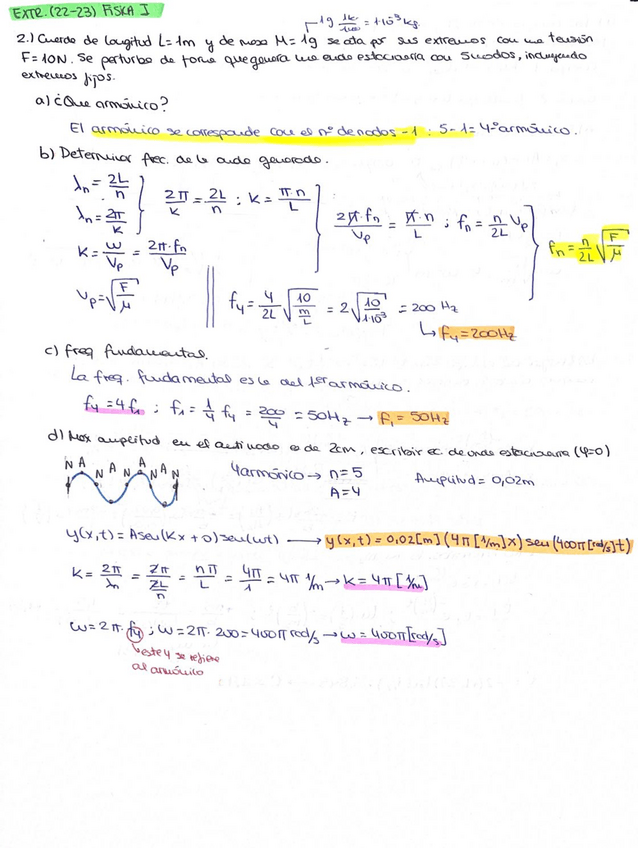 EXTR. (22-23) FISIKA I
1g 1k/1000 = 1·10⁻³ kg
2.) Cuerda de longitud L=1m y de masa M=1g se ata por sus extremos con una tensión
F=10N. Se perturba de forma que genera una onda estacionaria con 5 nodos, incluyendo
extremos fijos.
a) ¿Que armónico?
El armónico se corresponde con el nº de nodos -1 : 5-1=4º armónico.
b) Determinar frec. de la onda generada.
λn = 2L/n
λn = 2π/K
2π/K = 2L/n ; K = π·n/L
K = ω/Vp = 2π·fn/Vp
2π·fn/Vp = π·n/L ; fn = n/2L Vp
fn = n/2L √F/μ
Vp = √F/μ
f4 = 4/2L √10/(m/L) = 2√10/1·10⁻³ = 200 Hz
↳ f4 = 200Hz
c) freq fundamental.
La freq. fundamental es la del 1er armónico.
f4 = 4f1 ; f1 = 1/4 f4 = 200/4 = 50Hz → f1 = 50Hz
d) Max amplitud en el antinodo es de 2cm, escribir ec. de onda estacionaria (φ=0)
N A N A N A N A N
4 armónico → n=5
A=4
Amplitud = 0,02m
y(x,t) = A sen(Kx + 0) sen(ωt) → y(x,t) = 0,02[m] (4π[1/m]x) sen (400π[rad/s]t)
K = 2π/λn = 2π/(2L/n) = nπ/L = 4π/1 = 4π 1/m → K = 4π [1/m]
ω = 2π·f4 ; ω = 2π·200 = 400π rad/s → ω = 400π[rad/s]
↳ este 4 se refiere
al armónico